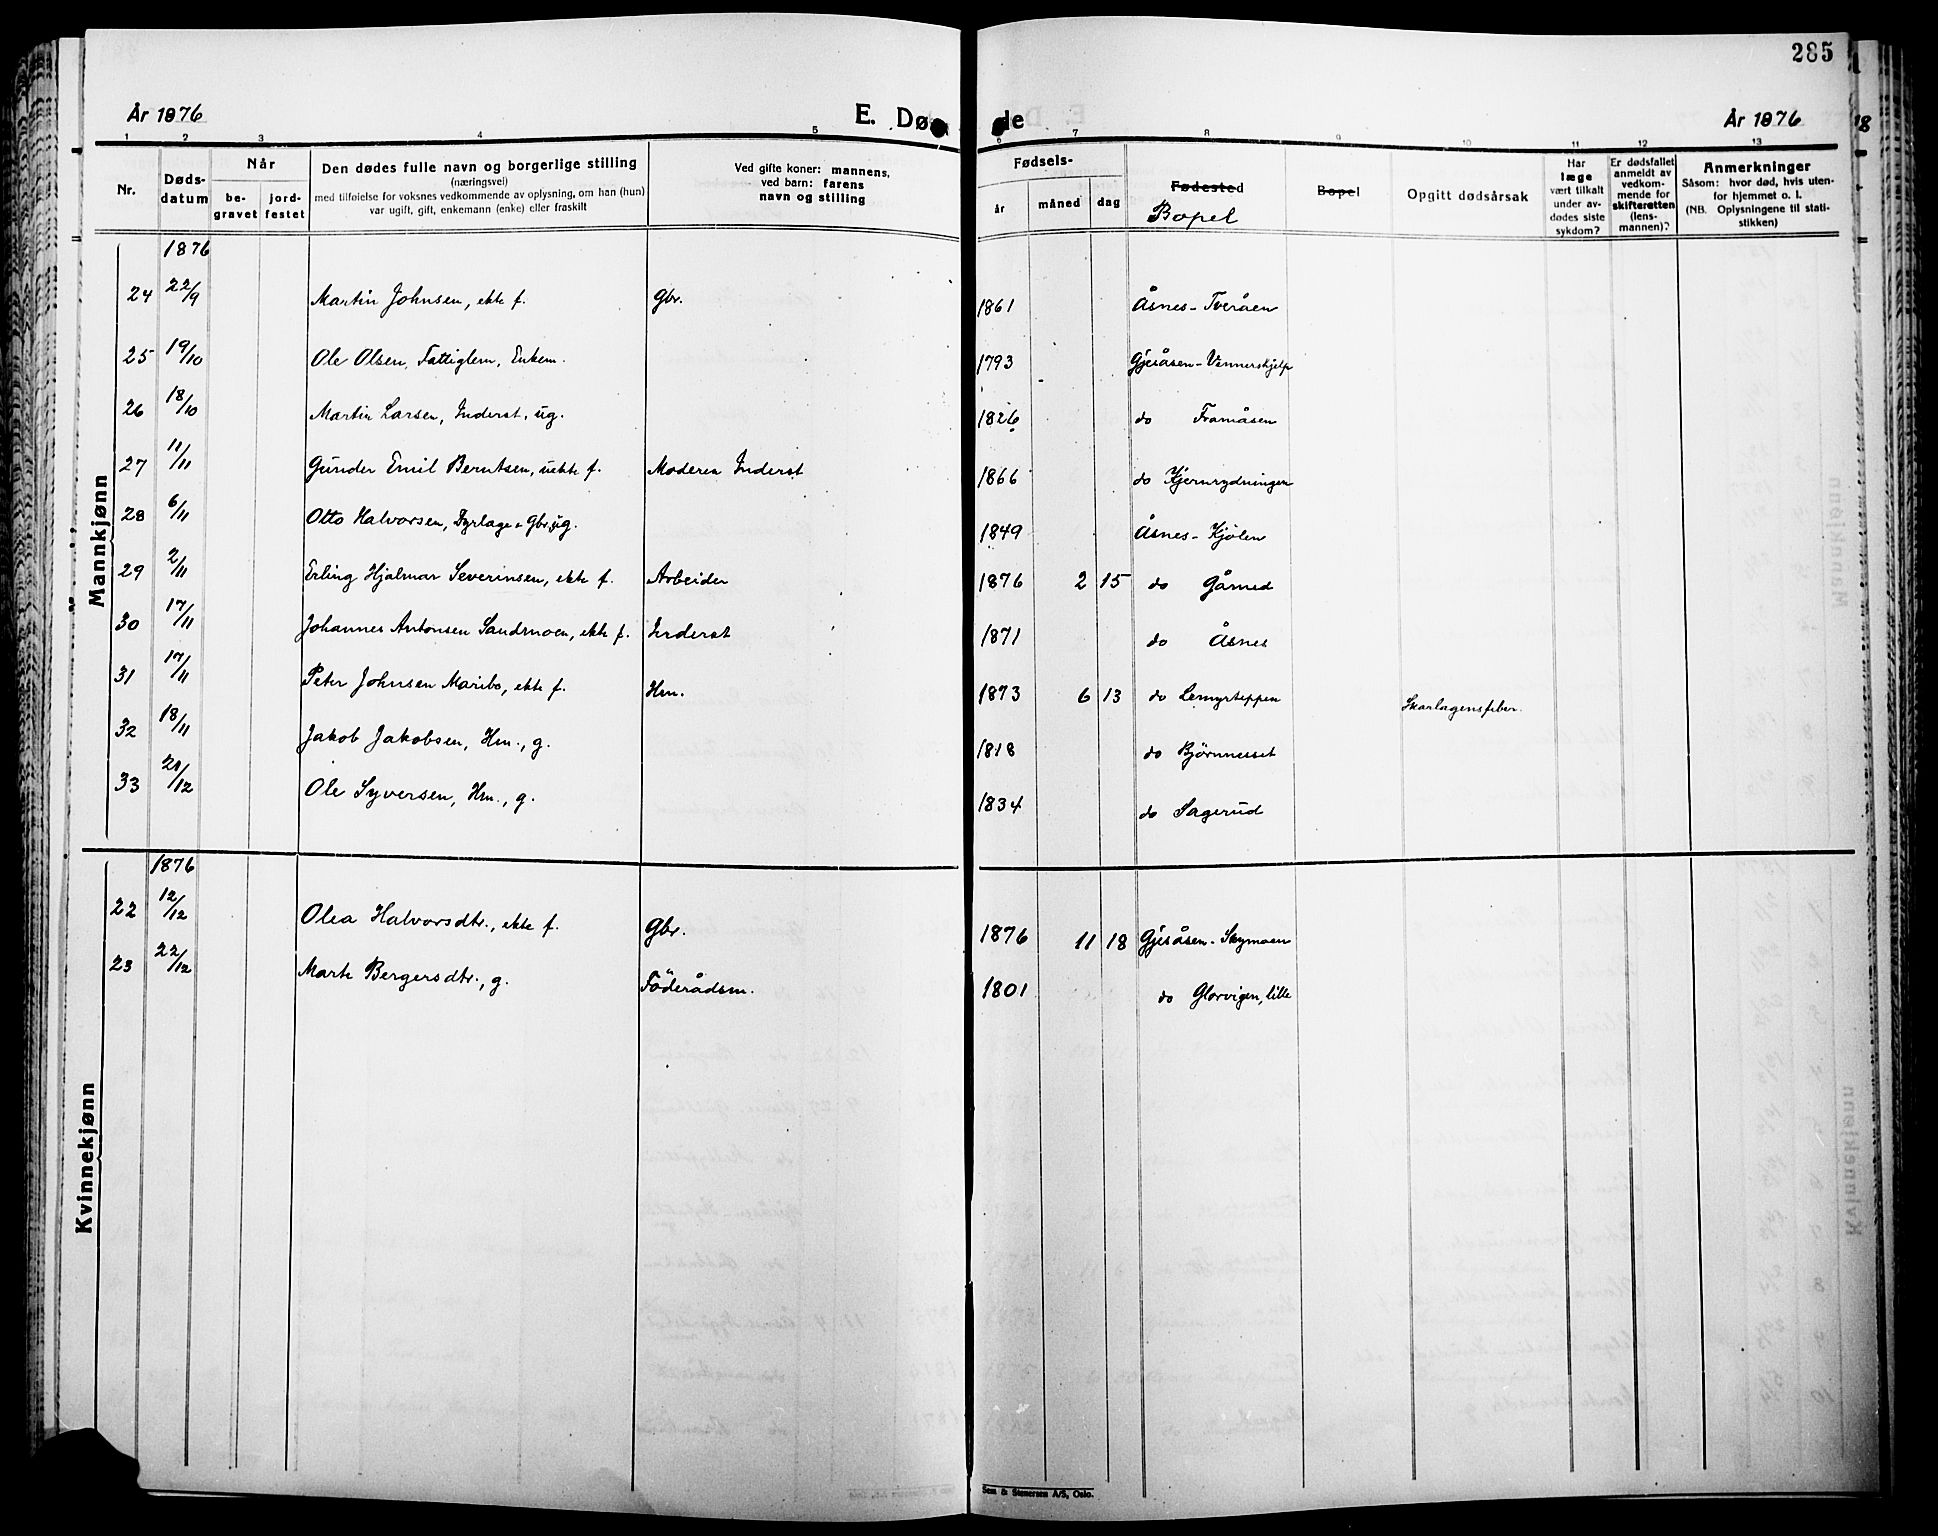 285
År 1876 E. Dø de År 1876
1 2 3 4 5 6 7 8 9 10 11 12 13
Nr.
Døds-
datum
Når
be-
gravet
jord-
festet
Den dødes fulle navn og borgerlige stilling
(næringsvei)
med tilføielse for voksnes vedkommende av oplysning, om han (hun)
var ugift, gift, enkemann (enke) eller fraskilt
Ved gifte koner: mannens,
ved barn: farens
navn og stilling
Fødsels-
år måned dag
Fødested
Bopel
Bopel
Opgitt dødsårsak
Har
læge
vært tilkalt
under av-
dødes siste
sykdom?
Er dødsfallet
anmeldt av
vedkom-
mende for
skifteretten
(lens-
mannen)?
Anmerkninger
Såsom: hvor død, hvis uten-
for hjemmet o. l.
(NB. Oplysningene til stati-
stikken)
Mannkjønn
1876
24 22/9 Martin Johnsen, ekte f. Gbr. 1861 Åsnes - Tveråen
25 19/10 Ole Olsen, Fattiglem, Enkem. 1793 Gjesåsen - Vennershjelp
26 18/10 Martin Larsen, Inderst, ug. 1826 do Framåsen
27 11/11 Gunder Emil Berntsen, uekte f. Moderen Inderst 1866 do Kjernrydningen
28 6/11 Otto Halvorsen, Dyrlæge + Gbr, ug. 1849 Åsnes - Kjølen
29 2/11 Erling Hjalmar Severinsen, ekte f. Arbeider 1876 2 15 do Gårned
30 17/11 Johannes Antonsen Sandmoen, ekte f. Inderst 1871 do Åsnes
31 17/11 Peter Johnsen Maribo, ekte f. Hm. 1873 6 13 do Lemyrteppen Skarlagensfeber.
32 18/11 Jakob Jakobsen, Hm., g. 1818 do Bjørnnesset
33 21/12 Ole Syversen, Hm., g. 1834 do Sagerud
Kvinnekjønn
1876
22 12/12 Olea Halvorsdtr., ekte f. Gbr. 1876 11 18 Gjesåsen - Skymoen
23 22/12 Marte Bergersdtr., g. Föderådsm. 1801 do Glorvigen, lille
Sem & Stenersen A/S, Oslo.